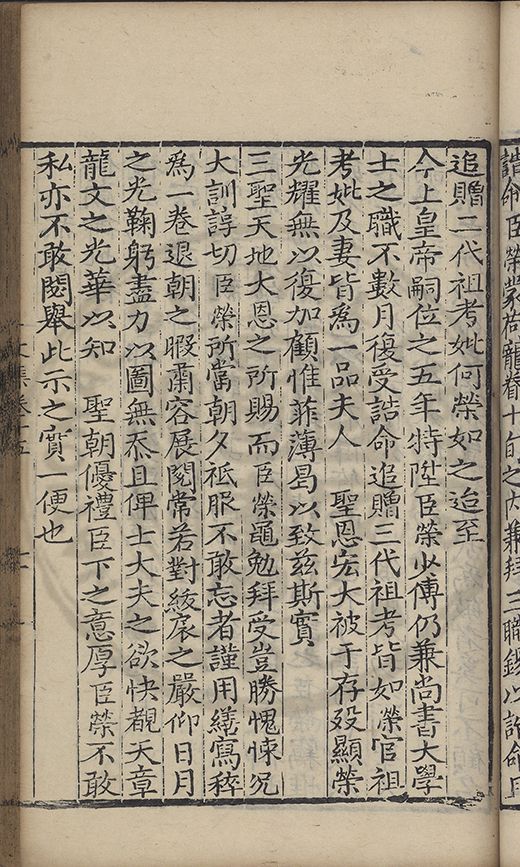 誥命臣榮蒙荷寵眷十旬之內兼拜三職錫以誥命且
追贈二代祖考妣何榮如之迨至
今上皇帝嗣位之五年特陞臣榮少傅仍兼尚書大學
士之職不數月復受誥命追贈三代祖考皆如榮官祖
考妣及妻皆為一品夫人 聖恩宏大被于存歿顯榮
光耀無以復加顧惟菲薄曷以致玆斯實
三聖天地大恩之所賜而臣榮黽勉拜受豈勝愧悚况
大訓諄切臣榮所當朝夕祗服不敢忘者謹用繕寫稡
為一卷退朝之暇肅容展閱常若對綾扆之嚴仰日月
之光鞠躬盡力以圖無忝且俾士大夫之欲快覩天章
龍文之光華以知 聖朝優禮臣下之意厚臣榮不敢
私亦不敢閟舉此示之實一便也
文集卷十五